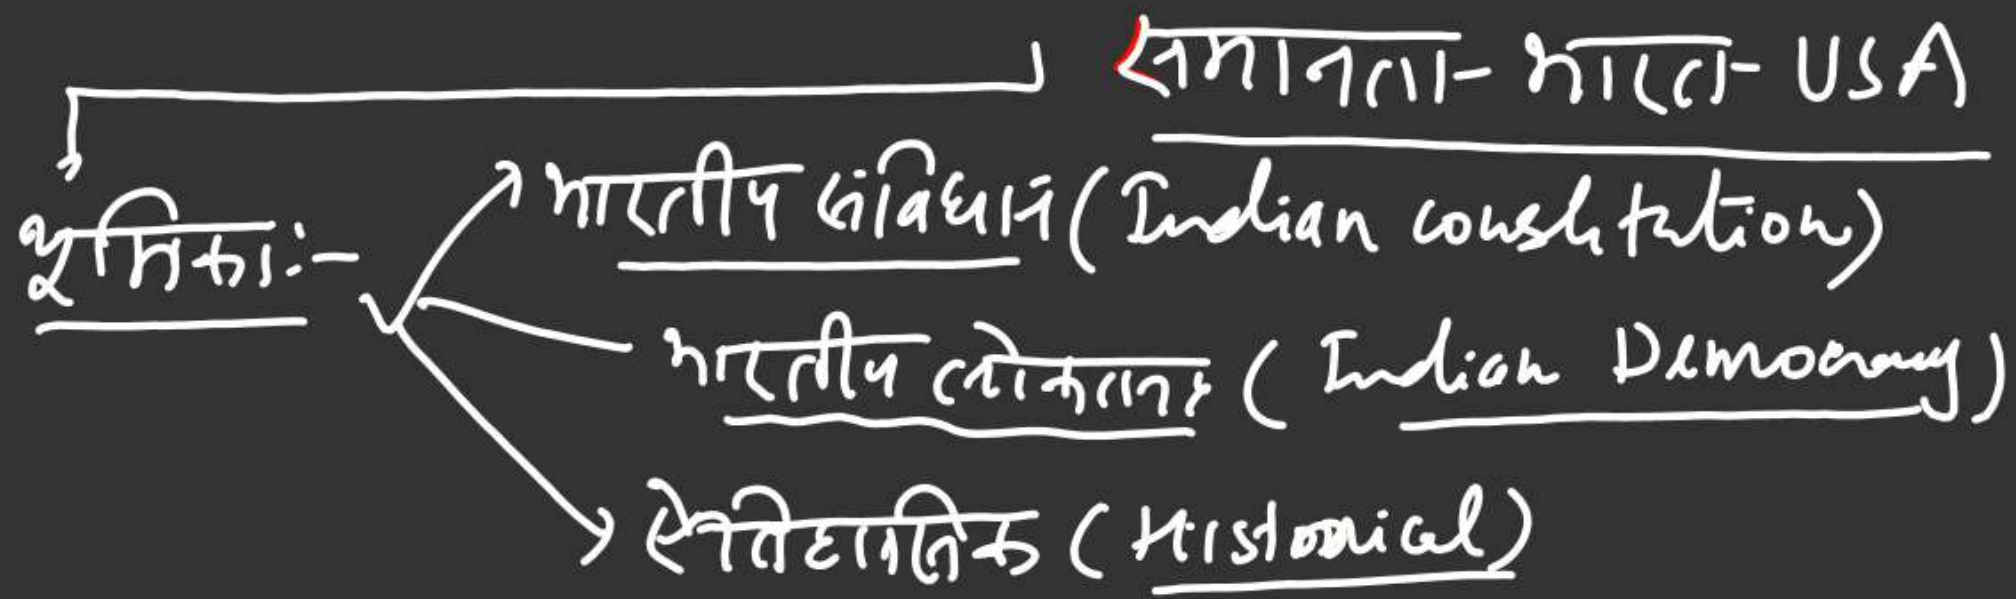 समानता - भारत - USA
भूमिका :-
भारतीय संविधान (Indian constitution)
भारतीय लोकतन्त्र (Indian Democracy)
ऐतिहासिक (Historical)